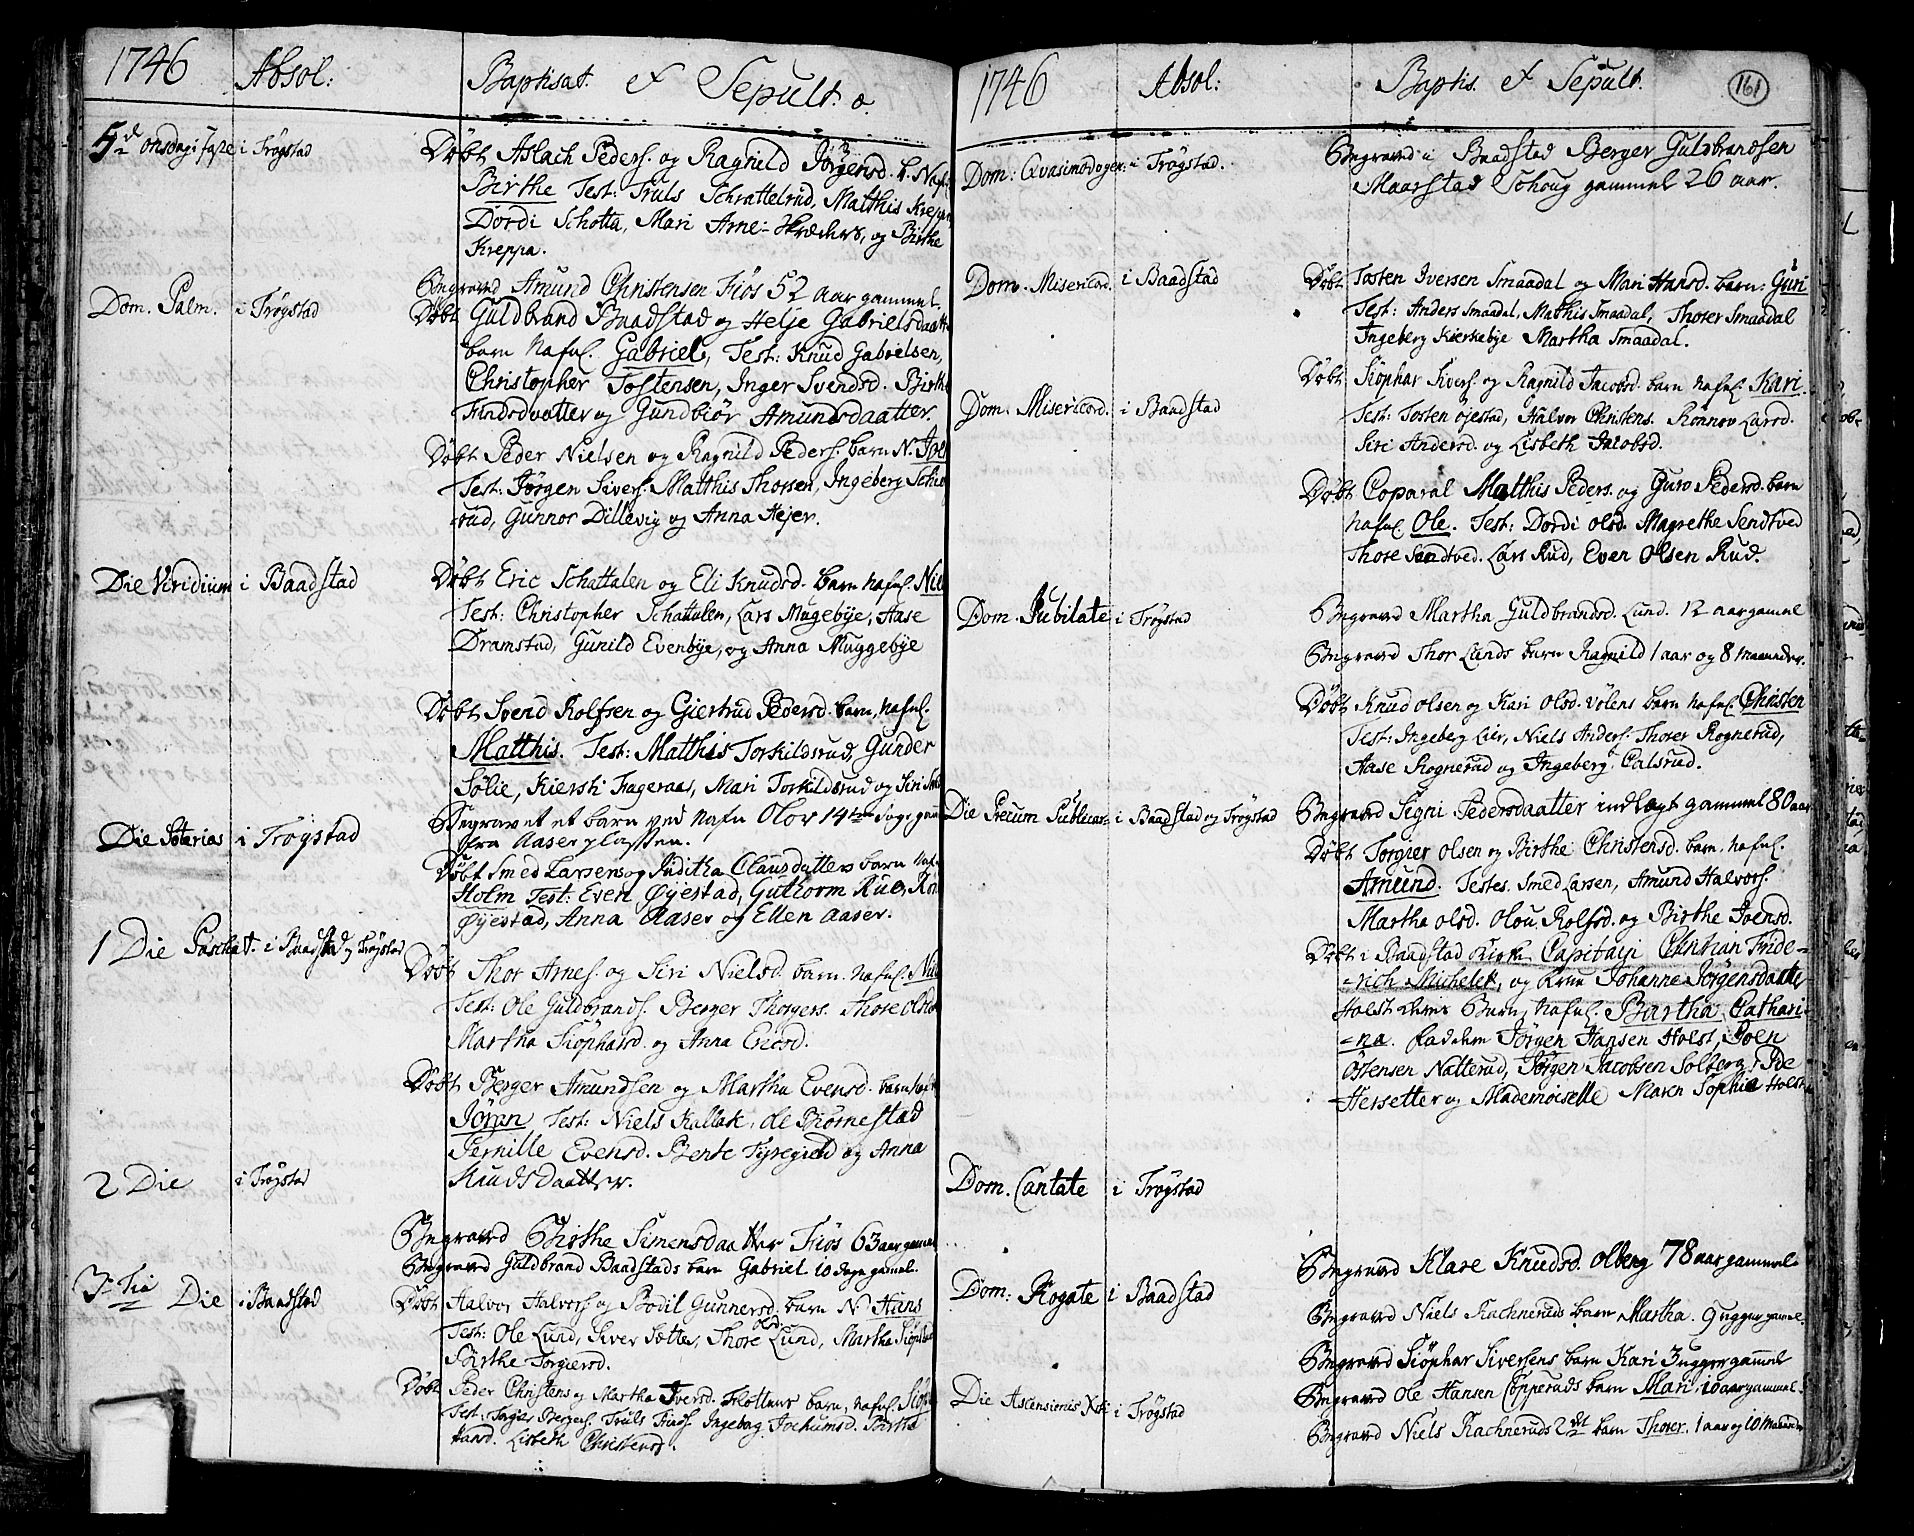 1746 Absol: Baptisat. et Sepult. a
5d onsdag i faste i Trøgstad
Døbt Aslach Peders. og Ragnild Jørgensd. b. Naf.
Birthe Test: Truls Schrattelrud, Matthis Kreppa
Dordi Schotta, Mari Arne- skreders, og Birthe
Kreppa.
Begraved Amund Christensen Fiøs 52 aar gammel
Dom. Palm. i Trøgstad
Døbt Guldbrand Baadstad og Helje Gabrielsdaatt
barn Nafnl. Gabriel, Test: Knud Gabrielsen,
Christopher Tostensen, Inger Svendsd. Birthe
Findsdaatter og Gundbiør Amundsdaatter.
Døbt Peder Nielsen og Ragnild Peders. barn N. Joe
Test: Jørgen Sivers. Matthis Thorsen, Ingeberg Schio
-rud, Gunnor Dillevig og Anna Hejer.
Die Viridium i Baadstad
Døbt Eric Schattalen og Eli Knudsd. barn nafnl. Niels
Test: Christopher Schattalen, Lars Mugebye, Aase
Dramstad, Gunild Evenbye, og Anna Muggebye
Døbt Svend Rolfsen og Giertrud Pedersd. barn, nafnl.
Matthis. Test: Matthis Torkildsrud, Gunder
Sølie, Kiersti Fageraas, Mari Torkildsrud og Siri
Die Soterias i Trøgstad
Begravet et barn ved nafn Olov 14 dage gam
fra Aaserplassen.
Døbt Smed Larsens og Inditha Clausdatters barn Naf.
Holm Test: Even Øyestad, Guthorm Rue,
Øyestad, Anna Aaser og Ellen Aaser.
1 Die Paschat. i Baadstad og Trøgstad
Døbt Thor Arnes. og Siri Nielsd. barn. nafnl. Niels
Test: Ole Guldbrands. Berger Thorgers. Thore Olsd
Martha Siøphersd. og Anna Ericsd.
Døbt Berger Amundsen og Martha Evensd. barn
Jøran, Test: Niels Kallak, ole Biørnestad
Pernille Evensd. Berte Tyregield og Anna
Knudsdaatter.
2 Die i Trøgstad
Begraved Birthe Simensdaatter Fiøs 63 aar gamel
Begraved Guldbrand Baadstads barn Gabriel 10 dage gamel.
3tia Die i Baadstad
Døbt Halvor Halvors. og Bodil Gunnersd. barn N. Hans
Test: Ole Lund, Siver Sætter, Thore olsd. Lund, Martha Siøph
Birthe Torgiersd.
Døbt Peder Christens og Martha Iversd. Flottens barn, nafnl.
Test: Torgier Berges. Truls Finds. Ingebaag Jochumsd. Birthe
Hansd. Lisbeth Christensd.
1746 Absol: Baptis. et Sepult. 161
Dom: Qvasimodogen: i Trøgstad.
Begraved i Baadstad Berger Guldbrandsen
Maarstad Schoug gammel 26 aar.
Dom. Misericord. i Baadstad
Døbt Tosten Iversen Smaadal og Mari Hansd. barn: Guri
Test: Anders Smaadal, Mathis Smaadal, Thorer Smaadal
Ingeberg Kierkebye Martha Smaadal.
Dom: Misericord. i Baadstad
Døbt Siøphar Sivers. og Ragnild Jacobsd. barn nafnl. Kari.
Test: Tosten øjestad, Halvor Christens. Rønnov Larsd.
Siri Andersd. og Lisbeth Jacobsd.
Døbt Coparal Matthis Peders. og Guro Pedersd. barn
nafnl. Ole. Test: Dordi olsd. Magrethe Sendtved
Thore Sendtved. Lars Rud, Even Olsen Rud.
Dom. Jubilate i Trøgstad
Begraved Martha Guldbrandsd. Lund. 12 aar gamel
Begraved Thor Lunds barn Ragnild 1 aar og 8 maaneder.
Døbt Knud Olsen og Kari olsd. Volens barn nafnl. Christen
Test: Ingeberg Lier, Niels Anders. Thorer Rognerud,
Aase Rognerud og Ingeberg Calsrud.
Die Precum Publicar: i Baadstad og Trøgstad
Begraved Signi Pedersdaatter indlagt gammel 80 aar
Døbt Torgier Olsen og Birthe Christensd. barn. nafnl.
Amund. Testes. Smed Larsen, Amund Halvors.
Martha olsd. Olou Rolfsd. og Birthe Joensd.
Døbt i Baadstad kirke Capitain Christian Fride-
-rich Michelet, og Frue Johanne Jørgensdaatter
Holst deres Barn, nafnl. Bartha Cathari-
-na. faddern Jørgen Hansen Holst, Joen
Østensen Natterud, Jørgen Jacobsen Solberg, Die
Hersetter og Mademoiselle Maren Sophie Holst
Dom. Cantate i Trøgstad
Begraved Klare Knudsd. Olberg 78 aar gammel
Dom: Rogate i Baadstad
Begraved Niels Rachneruds barn Martha. 9 ugger gamel.
Begraved Siøphar Siversens barn Kari 3 ugger gammel
Die Ascensionis Xsti i Trøgstad
Begraved Ole Hansen Copperuds barn Mari. 10 aar gammel.
Begraved Niels Rachneruds 2det barn Thorer. 1 aar og 10 Maaneder